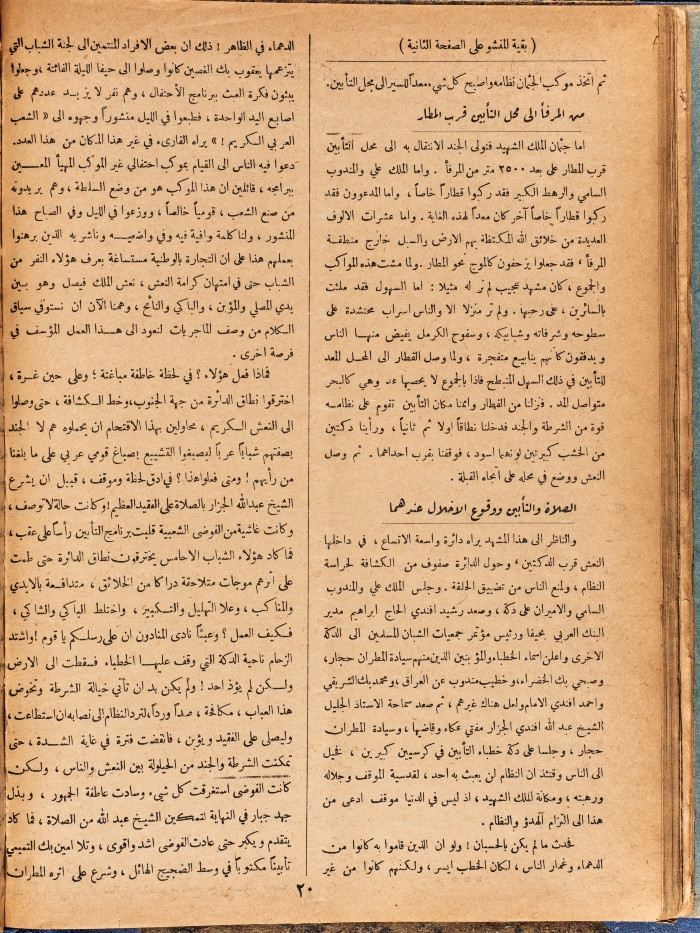 ( بقية المنشو على الصفحة الثانية )
ثم اتخذ موكب الجثمان نظامه واصبح كل شيء معداً للسير الى محل التأبين.
من المرفأ الى محل التأبين قرب المطار
اما جثمان الملك الشهيد فتولى الجند الانتقال به الى محل التأبين
قرب المطار على بعد ٢٥٠٠ متر من المرفأ . واما الملك علي والمندوب
السامي والرهط الكبير فقد ركبوا قطاراً خاصاً ، واما المدعوون فقد
ركبوا قطاراً خاصاً آخر كان معداً لهذه الغاية . واما عشرات الالوف
العديدة من خلائق الله المكتظة بهم الارض والسبل خارج منطقة
المرفأ ، فقد جعلوا يزحفون كالموج نحو المطار . ولما مشت هذه المواكب
والجموع ، كان مشهد عجيب لم نر له مثيلا : اما السهول فقد ملئت
بالسائرين ، على رحبها . ولم نر منزلا الا والناس اسراب محتشدة على
سطوحه وشرفاته وشبابيكه ، وسفوح الكرمل يفيض منها الناس
ويدفقون كأنهم ينابيع متفجرة ، ولما وصل القطار الى المحل المعد
للتأبين في ذلك السهل المنبطح فاذا بالجموع لا يحصيها عد وهي كالبحر
متواصل المد . فنزلنا من القطار واتمنا مكان التأبين تقوم على نظامه
قوة من الشرطة والجند فدخلنا نطاقاً اولا ثم ثانياً ، ورأينا دكتين
من الخشب كبيرتين لونهما اسود ، فوقفنا بقرب احداهما . ثم وصل
النعش ووضع في محله على اتجاه القبلة .
الصلاة والتأبين ووقوع الاخلال عندهما
والناظر الى هذا المشهد يراه دائرة واسعة الاتساع ، في داخلها
النعش قرب الدكتين ، وحول الدائرة صفوف من الكشافة لحراسة
النظام ، ولمنع الناس من تضييق الحلقة . وجلس الملك علي والمندوب
السامي والاميران على دكة ، وصعد رشيد افندي الحاج ابراهيم مدير
البنك العربي بحيفا ورئيس مؤتمر جمعيات الشبان المسلمين الى الدكة
الاخرى واعلن اسماء الخطباء والمؤبنين الذين منهم سيادة المطران حجار،
وصبحي بك الخضراء ، وخطيب مندوب عن العراق ، ومحمد بك الشريقي
واحمد افندي الامام ولعل هناك غيرهم ، ثم صعد سماحة الاستاذ الجليل
الشيخ عبد الله افندي الجزار مفتي عكاء وقاضيها ، وسيادة المطران
حجار ، وجلسا على دكة خطباء التأبين في كرسيين كبيرين ، نخيل
الى الناس وقتئذ ان النظام لن يعبث به احد ، لقدسية الموقف وجلاله
ورهبته ، ومكانة الملك الشهيد ، اذ ليس في الدنيا موقف ادعى من
هذا الى التزام الهدؤ والنظام .
فحدث ما لم يكن بالحسبان ! ولو ان الذين قاموا به كانوا من
الدهماء وغمار الناس ، لكان الخطب ايسر ، ولكنهم كانوا من غير
الدهماء في الظاهر ! ذلك ان بعض الافراد المنتمين الى لجنة الشباب التي
يتزعمها يعقوب بك الغصين كانوا وصلوا الى حيفا الليلة الفائتة ، وجعلوا
يبثون فكرة العبث ببرنامج الأحتفال ، وهم نفر لا يزيد عددهم على
اصابع اليد الواحدة ، فطبعوا في الليل منشوراً وجهوه الى « الشعب
العربي الكريم ! » يراه القارىء في غير هذا المكان من هذا العدد.
دعوا فيه الناس الى القيام بموكب احتفالي غير الموكب المهيأ المعين
ببرامجه ، قائلين ان هذا الموكب هو من وضع السلطة ، وهم يريدونه
من صنع الشعب ، قومياً خالصاً ، ووزعوا في الليل وفي الصباح هذا
المنشور ، ولنا كلمة وافية فيه وفي واضعيه وناشريه الذين برهنوا
بعملهم هذا على ان التجارة بالوطنية مستساغة بعرف هؤلاء النفر من
الشباب حتى في امتهان كرامة النعش ، نعش الملك فيصل وهو بين
يدي المصلي والمؤبن ، والباكي والنائح ، وهمنا الآن ان نستوفي سياق
الكلام من وصف الماجريات لنعود الى هذا العمل المؤسف في
فرصة اخرى .
فماذا فعل هؤلاء ؟ في لحظة خاطفة مباغتة ؛ وعلى حين غرة ،
اخترقوا نطاق الدائرة من جهة الجنوب ، وخط الكشافة ، حتى وصلوا
الى النعش الكريم ، محاولين بهذا الاقتحام ان يحملوه هم لا الجند
بصفتهم شباباً عرباً ليصبغوا التشييع بصباغ قومي عربي على ما بلغنا
من رأيهم ! ومتى فعلوا هذا ؟ في ادق لحظة وموقف ، قبيل ان يشرع
الشيخ عبدالله الجزار بالصلاة على الفقيد العظيم ! وكانت حالة لا توصف ،
وكانت غاشية من الفوضى الشعبية قلبت برنامج التأبين رأساً على عقب ،
فما كاد هؤلاء الشباب الاحامس يخترقون نطاق الدائرة حتى طمت
على أثرهم موجات متلاحقة دراكا من الخلائق ، متدافعة بالايدي
والمناكب ، وعلا التهليل والتكبير ، واختلط الباكي والشاكي ،
فكيف العمل ؟ وعبثاً نادى المنادون ان على رسلكم يا قوم ! واشتد
الزحام ناحية الدكة التي وقف عليها الخطباء فسقطت الى الارض
ولكن لم يؤذ احد ! ولم يكن بد ان تأتي خيالة الشرطة وتخوض
هذا العباب ، مكافحة ، صداً ورداً ، لترد النظام الى نصابه ان استطاعت ،
وليصلى على الفقيد ويؤبن ، فانقضت فترة في غاية الشدة ، حتى
تمكنت الشرطة والجند من الحيلولة بين النعش والناس ، ولكن
كانت الفوضى استغرقت كل شيء وسادت عاطفة الجمهور ، وبذل
جهد جبار في النهاية لتمكين الشيخ عبد الله من الصلاة ، فما كاد
يتقدم ويكبر حتى عادت الفوضى اشد واقوى ، وتلا امين بك التميمي
تأبيناً مكتوباً في وسط الضجيج الهائل ، وشرع على اثره المطران
٢٠